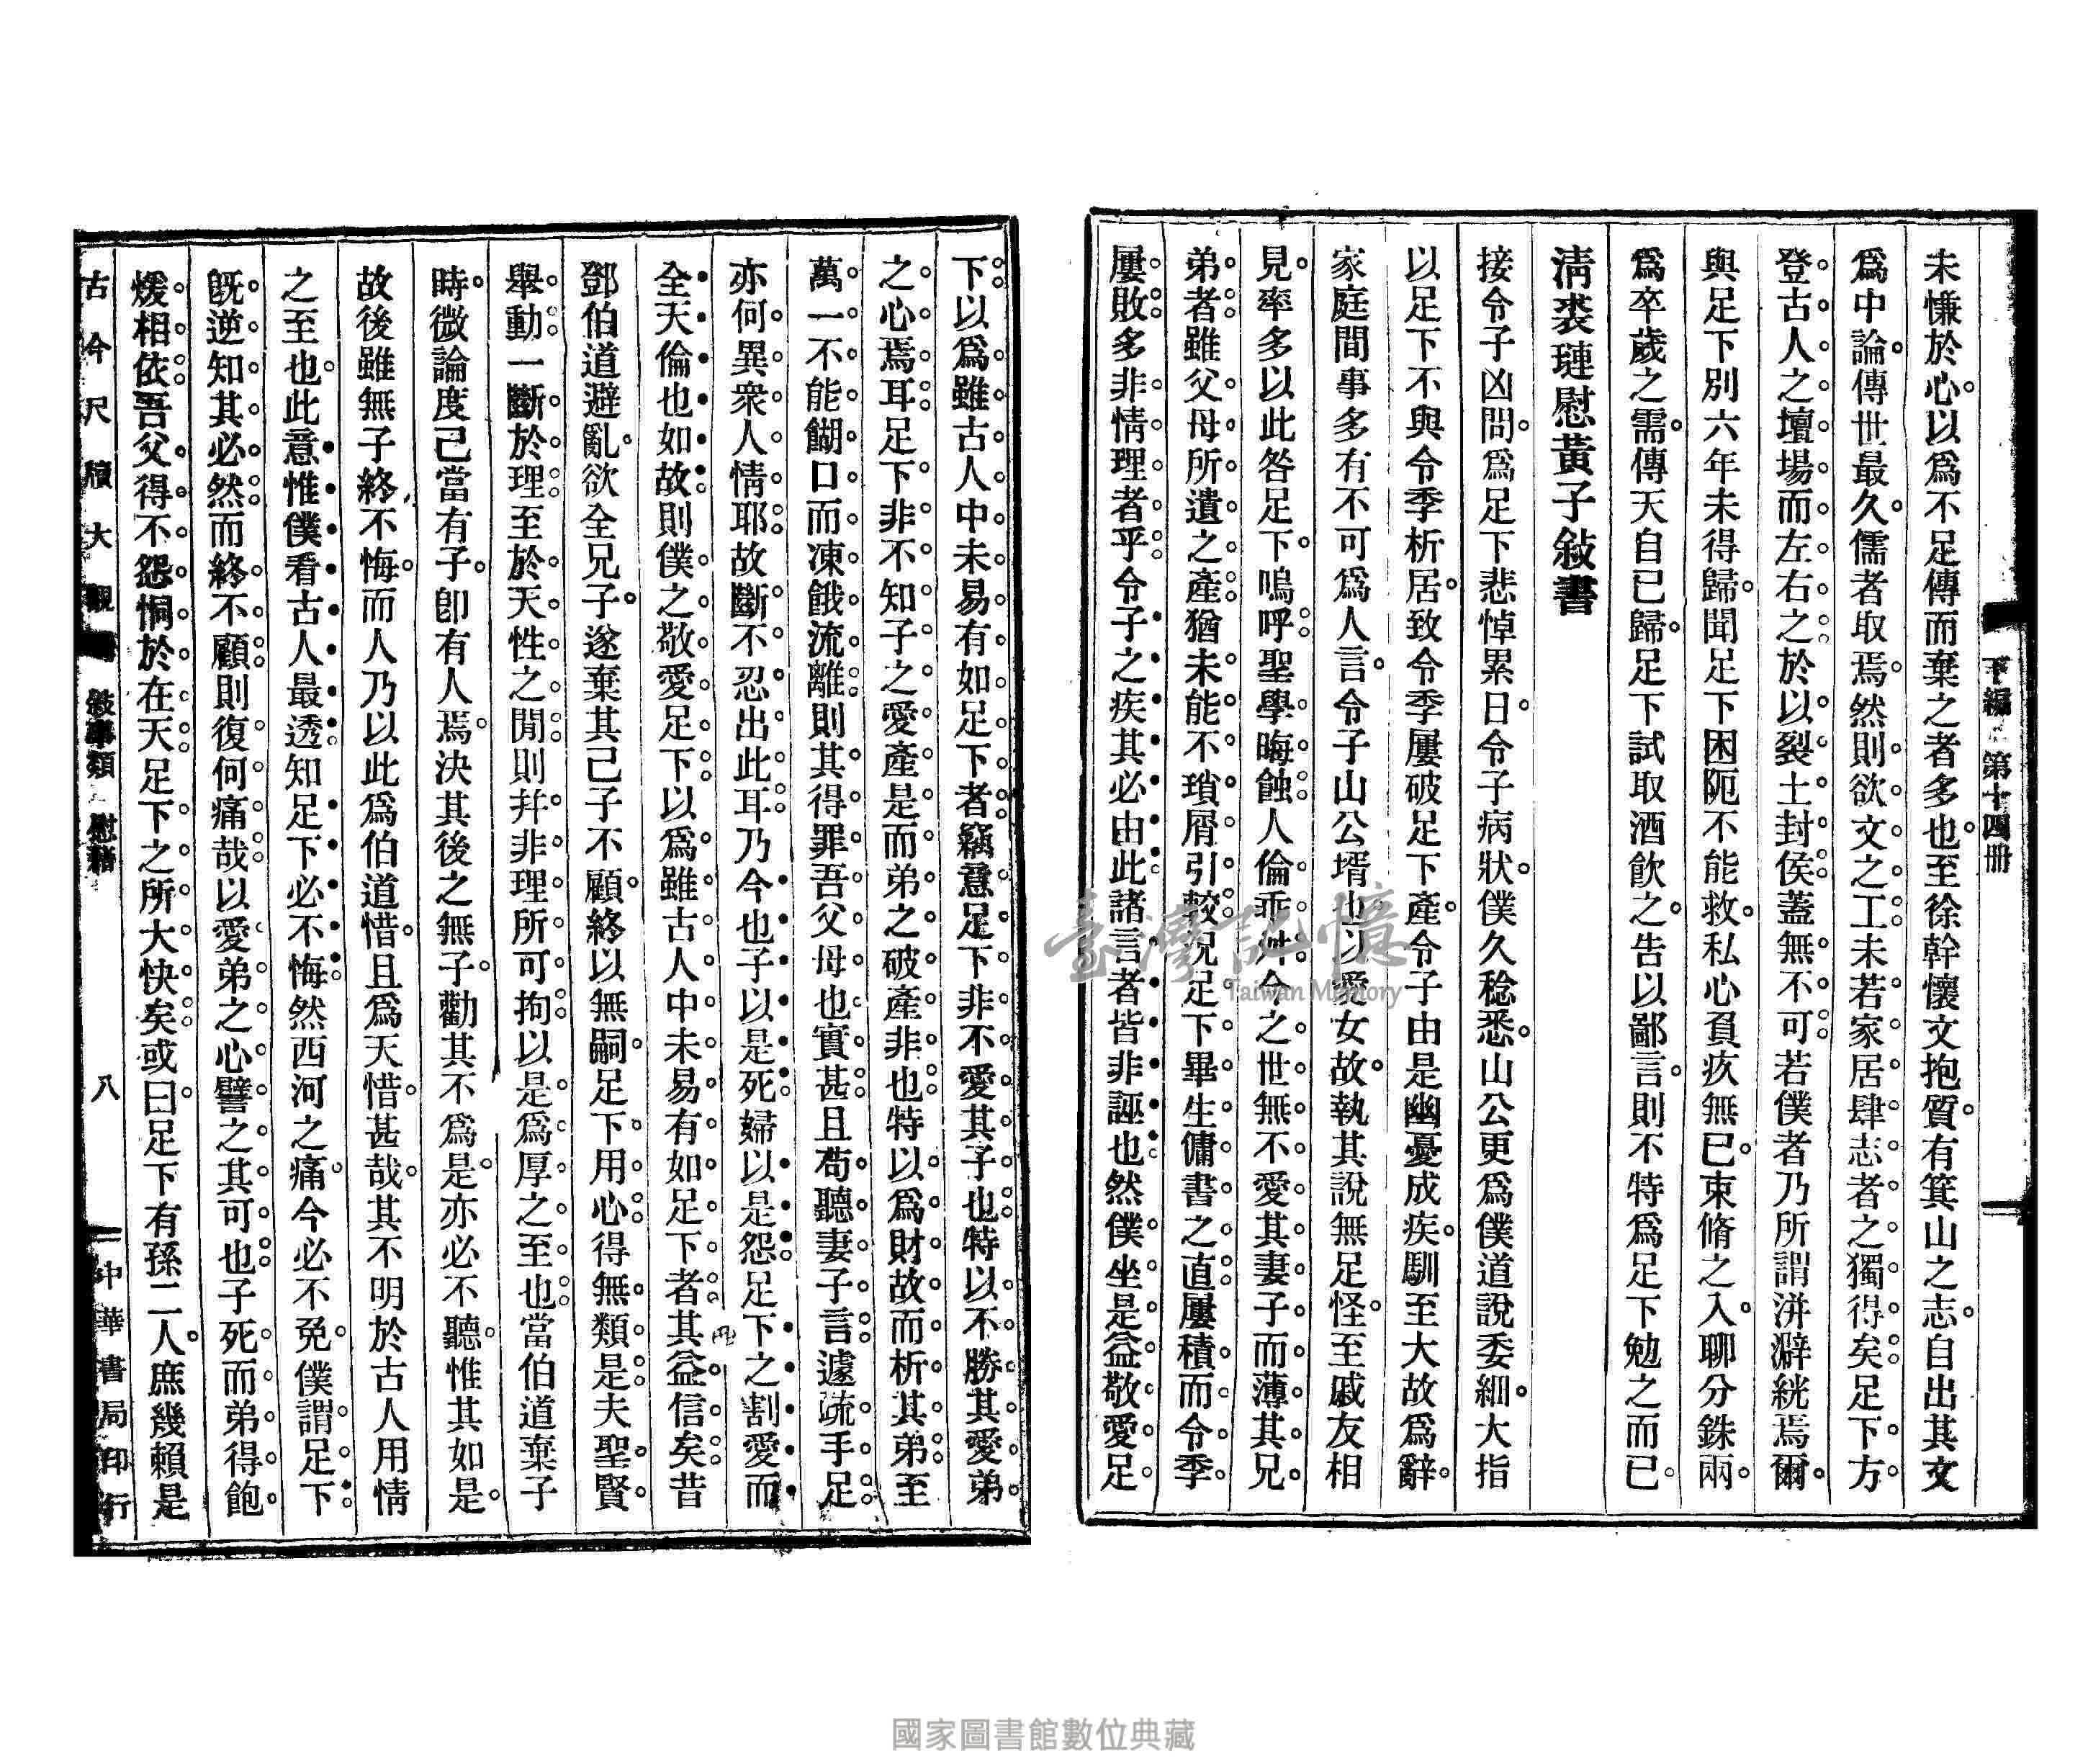 下編 第十四册
未慊於心。以爲不足傳而棄之者多也。至徐幹懷文抱質。有箕山之志。自出其文
爲中論。傳世最久。儒者取焉。然則欲文之工。未若家居肆志者之獨得矣。足下方
登古人之壇場。而左右之。於以裂土封侯。蓋無不可。若僕者乃所謂洴澼絖焉爾。
與足下別六年未得歸。聞足下困阨不能救。私心負疚無已。束脩之入。聊分銖兩。
爲卒歲之需。傳天自已歸。足下試取酒飮之。告以鄙言。則不特爲足下勉之而已。
淸裘璉慰黃子敍書
接令子凶問。爲足下悲悼累日。令子病狀。僕久稔悉。山公更爲僕道說委細。大指
以足下不與令季析居。致令季屢破足下產。令子由是幽憂成疾。馴至大故爲辭。
家庭間事多有不可爲人言。令子山公壻也。以愛女故。執其說無足怪。至戚友相
見。率多以此咎足下。嗚呼。聖學晦蝕。人倫乖舛。今之世無不愛其妻子而薄其兄。
弟者。雖父母所遺之產。猶未能不瑣屑引較。況足下畢生傭書之直。屢積而令季。
屢敗。多非情理者乎。令子之疾。其必由此。諸言者皆非誣也。然僕坐是益敬愛足
下。以爲雖古人中未易有如足下者。竊意足下非不愛其子也。特以不勝其愛弟。
之心焉耳。足下非不知子之愛產。是而弟之破產非也。特以爲財故而析其弟。至
萬一不能餬口而凍餓流離。則其得罪吾父母也實甚。且苟聽妻子言遽疏手足。
亦何異衆人情耶。故斷不忍出此耳。乃今也子以是死。婦以是怨。足下之割愛而
全天倫也如故。則僕之敬愛足下。以爲雖古人中未易有如足下者。其益信矣。昔
鄧伯道避亂。欲全兄子。遂棄其己子不顧。終以無嗣。足下用心得無類是。夫聖賢
舉動。一斷於理。至於天性之閒。則幷非理所可拘。以是爲厚之至也。當伯道棄子
時。微論度己當有子。卽有人焉。決其後之無子。勸其不爲是。亦必不聽。惟其如是。
故後雖無子終不悔。而人乃以此爲伯道惜。且爲天惜。甚哉。其不明於古人用情
之至也。此意惟僕看古人最透。知足下必不悔。然西河之痛。今必不免。僕謂足下
旣逆知其必然。而終不顧。則復何痛哉。以愛弟之心譬之。其可也。子死而弟得飽
煖相依。吾父得不怨恫於在天。足下之所大快矣。或曰。足下有孫二人。庶幾賴是
古今尺牘大觀
敍事類 慰藉
八
中華書局印行
臺灣記憶
Taiwan Memory
國家圖書館數位典藏